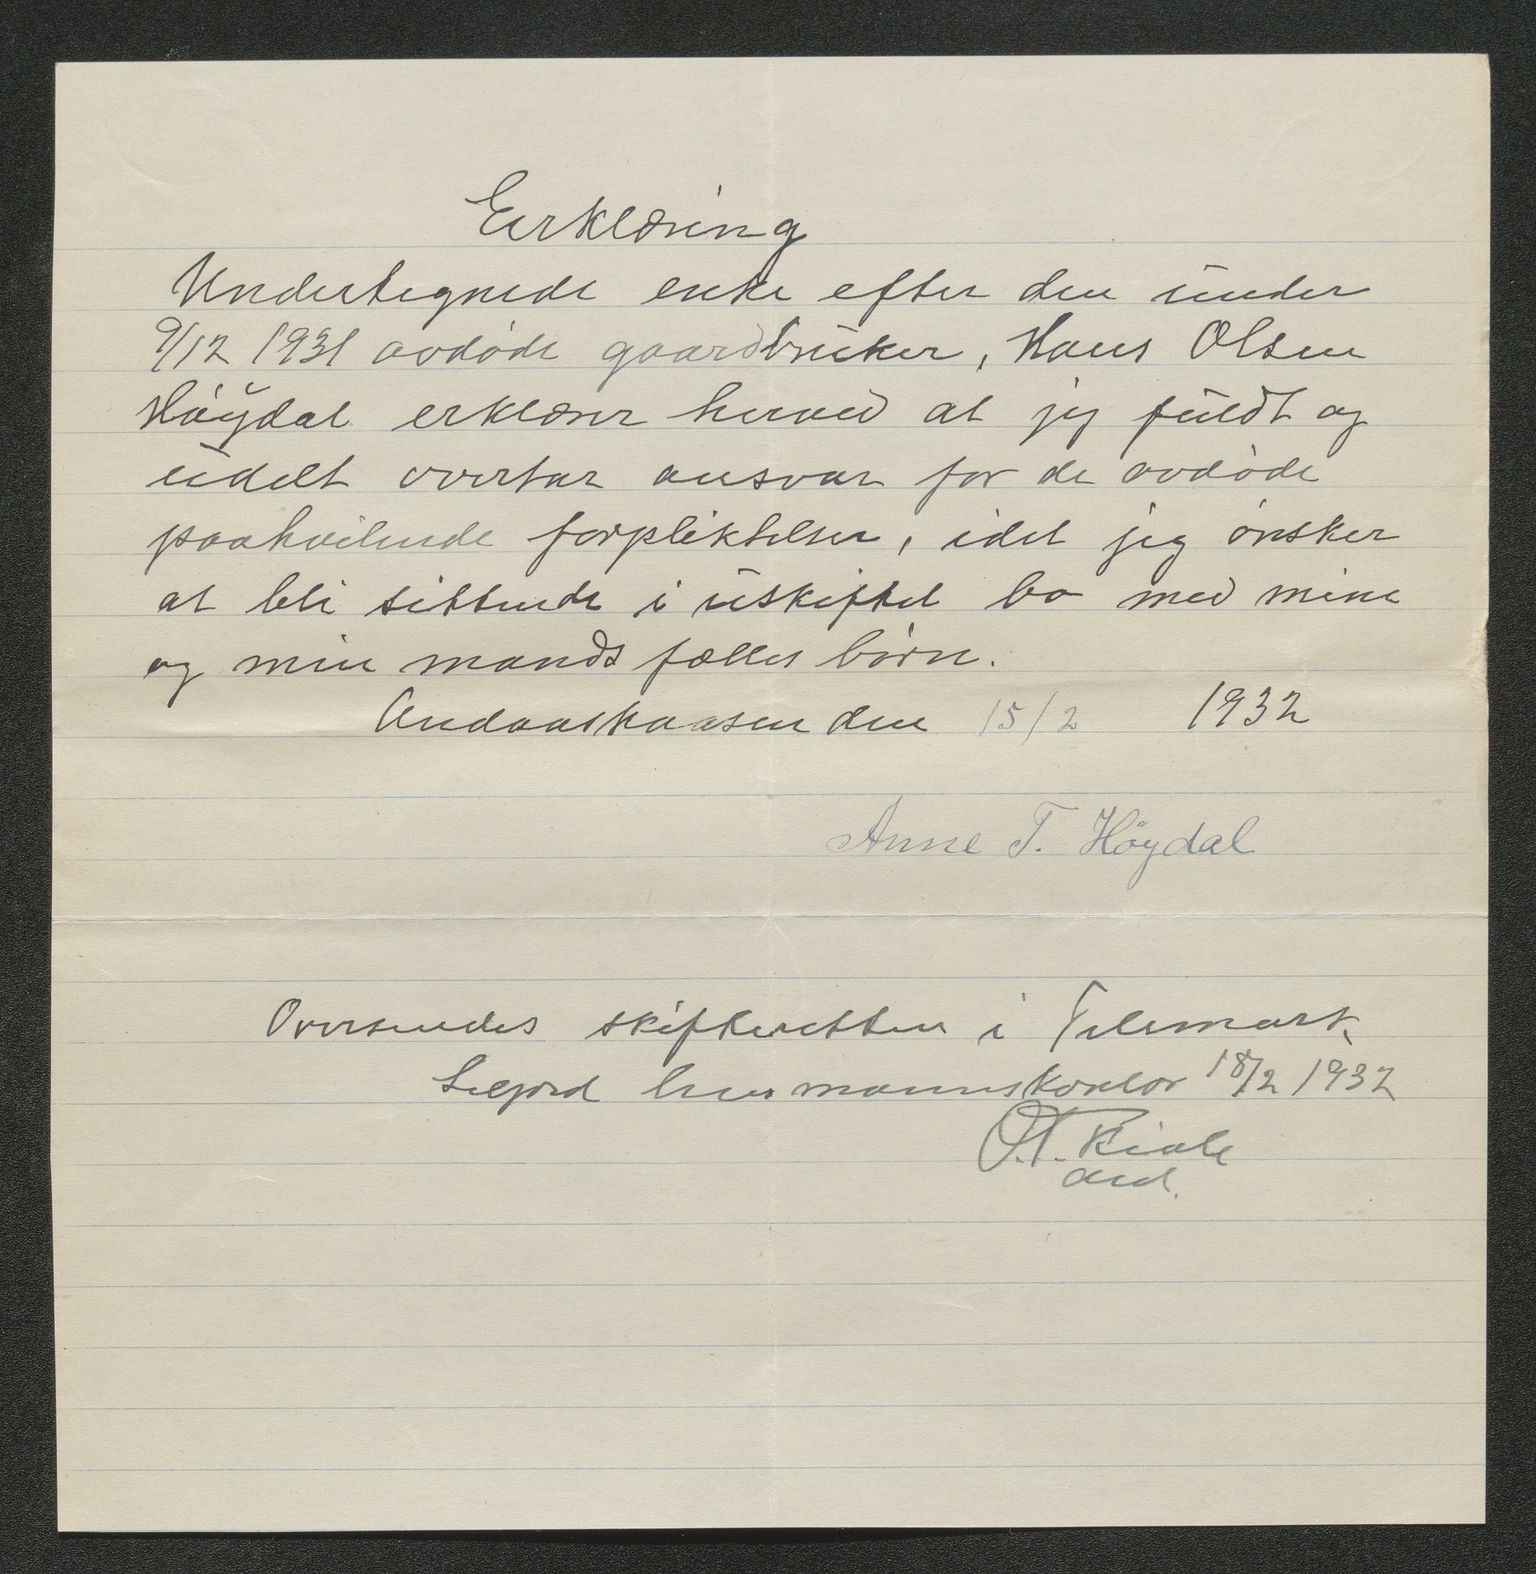 Erklæring
Undertegnede enke efter den under
9/12 1931 avdøde gaardbruker, Hans Olsen
Høydal erklærer herved at jeg fuldt og
udelt overtar ansvar for de avdøde
paahvilende forpliktelser, idet jeg ønsker
at bli sittende i uskiftet bo med mine
og min mands fælles børn.
den 15/2 1932
Anne T. Höydal
Oversendes skifteretten i Telemark.
Seljord lensmannskontor 18/2 1932
O.T.